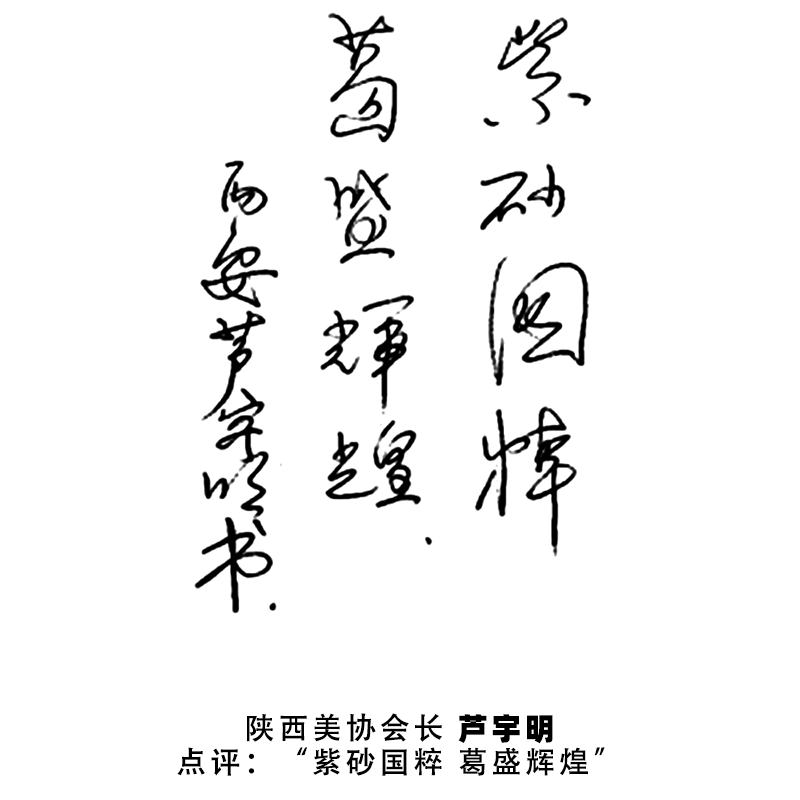 紫砂国粹
葛盛輝煌.
西安芦宇明书.
陕西美协会长 芦宇明
点评：“紫砂国粹 葛盛辉煌”